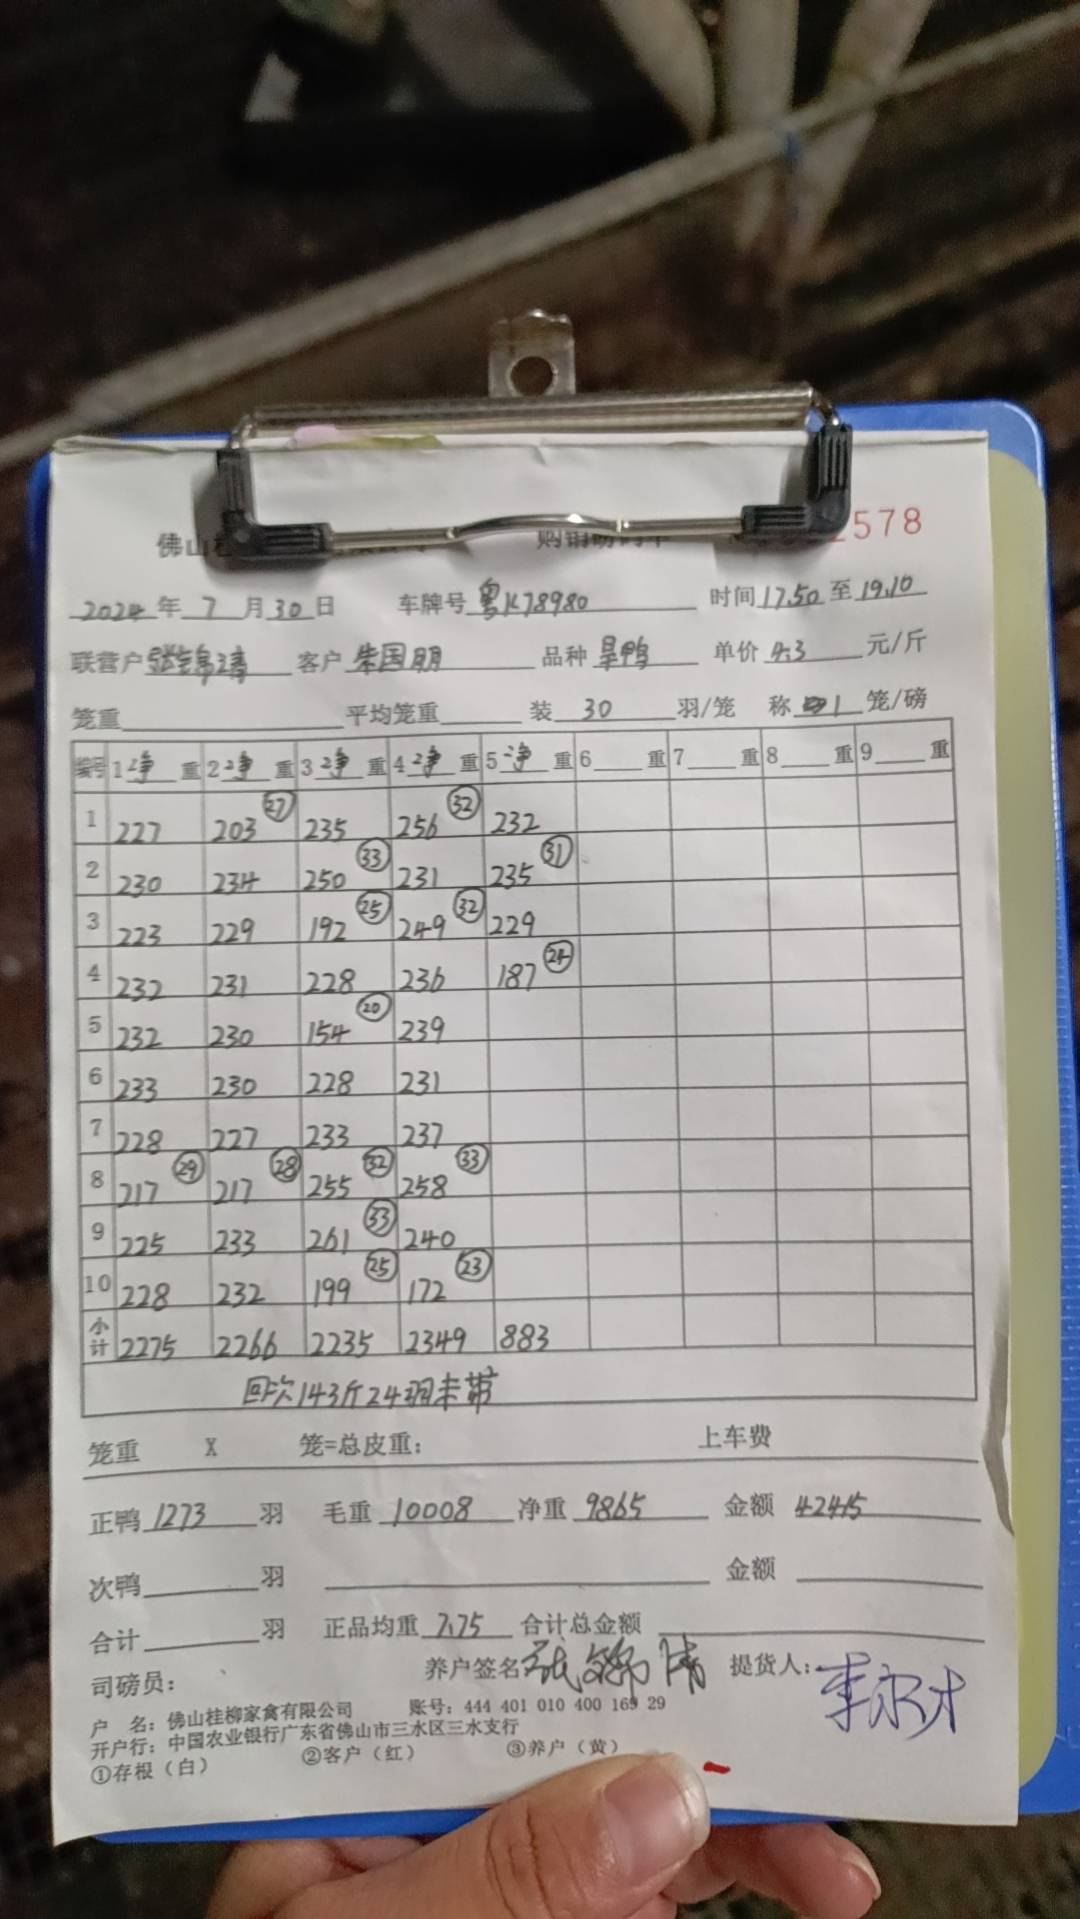 佛山桂 购销磅码单 2578
2024 年 7 月 30 日 车牌号 粤K78980 时间 17.50 至 19.10
联营户 张锦清 客户 朱国朋 品种 旱鸭 单价 4.3 元/斤
笼重 平均笼重 装 30 羽/笼 称 1 笼/磅
编号 1 净 重 2 净 重 3 净 重 4 净 重 5 净 重 6 重 7 重 8 重 9 重
1 227 203 ㉗ 235 256 ㉜ 232
2 230 234 250 ㉝ 231 235 ㉛
3 223 229 192 ㉕ 249 ㉜ 229
4 232 231 228 236 187 ㉔
5 232 230 154 ⑳ 239
6 233 230 228 231
7 228 227 233 237
8 217 ㉙ 217 ㉘ 255 ㉜ 258 ㉝
9 225 233 261 ㉝ 240
10 228 232 199 ㉕ 172 ㉓
小计 2275 2266 2235 2349 883
回次143斤24羽未带
笼重 X 笼=总皮重: 上车费
正鸭 1273 羽 毛重 10008 净重 9865 金额 42415
次鸭 羽 金额
合计 羽 正品均重 7.75 合计总金额
司磅员: 养户签名 张锦清 提货人:
户 名: 佛山桂柳家禽有限公司 账号: 444 401 010 400 169 29
开户行: 中国农业银行广东省佛山市三水区三水支行
①存根(白) ②客户(红) ③养户(黄)